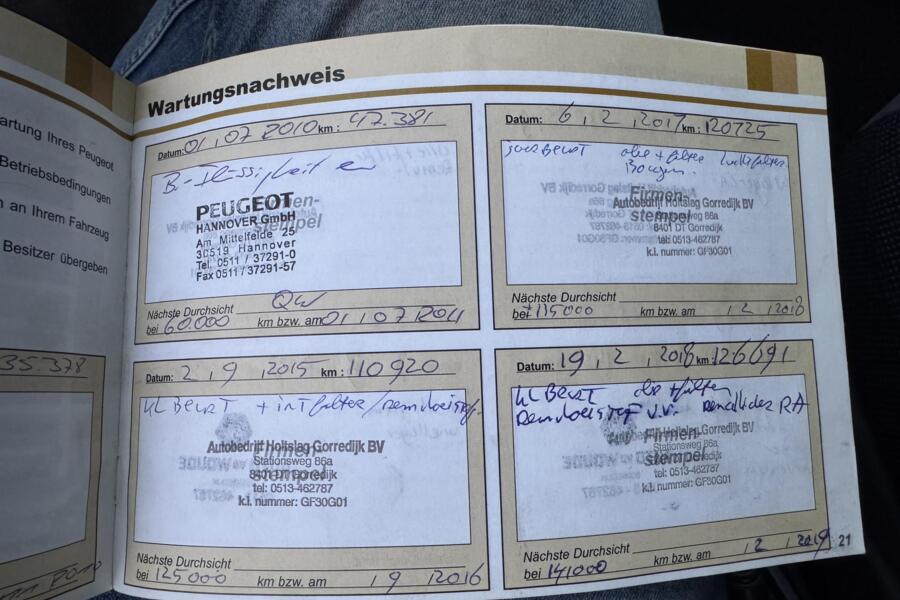 artung Ihres Peugeot
Betriebsbedingungen
n an Ihrem Fahrzeug
Besitzer übergeben
35.378
Wartungsnachweis
Datum: 01, 07 2010 km: 47.381
B.-Flüssigkeit en
PEUGEOT
HANNOVER GmbH
Am Mittelfelde 25
30519 Hannover
Tel. 0511 / 37291-0
Fax 0511 / 37291-57
Firmen-
stempel
Nächste Durchsicht
bei 60.000 km bzw. am 01, 07 2011
Datum: 6, 2, 2017 km: 120725
BEURT olie + filter luchtfilter
Firmen-
stempel
Autobedrijf Holtslag Gorredijk BV
Stationsweg 86a
8401 DT Gorredijk
tel: 0513-462787
k.l. nummer: GF30G01
Nächste Durchsicht
bei 135000 km bzw. am 1 2 2018
Datum: 2, 9, 2015 km: 110920
KL BEURT + intfilter / remvloeistof
Autobedrijf Holtslag Gorredijk BV
Firmen-
stempel
Stationsweg 86a
8401 DT Gorredijk
tel: 0513-462787
k.l. nummer: GF30G01
Nächste Durchsicht
bei 125000 km bzw. am 1 9 2016
Datum: 19, 2, 2018 km: 126691
KL BEURT olie + filter
Remvloeistof V.V. RA
Autobedrijf Holtslag Gorredijk BV
Firmen-
stempel
Stationsweg 86a
8401 DT Gorredijk
tel: 0513-462787
k.l. nummer: GF30G01
Nächste Durchsicht
bei 141000 km bzw. am 2 2019
21